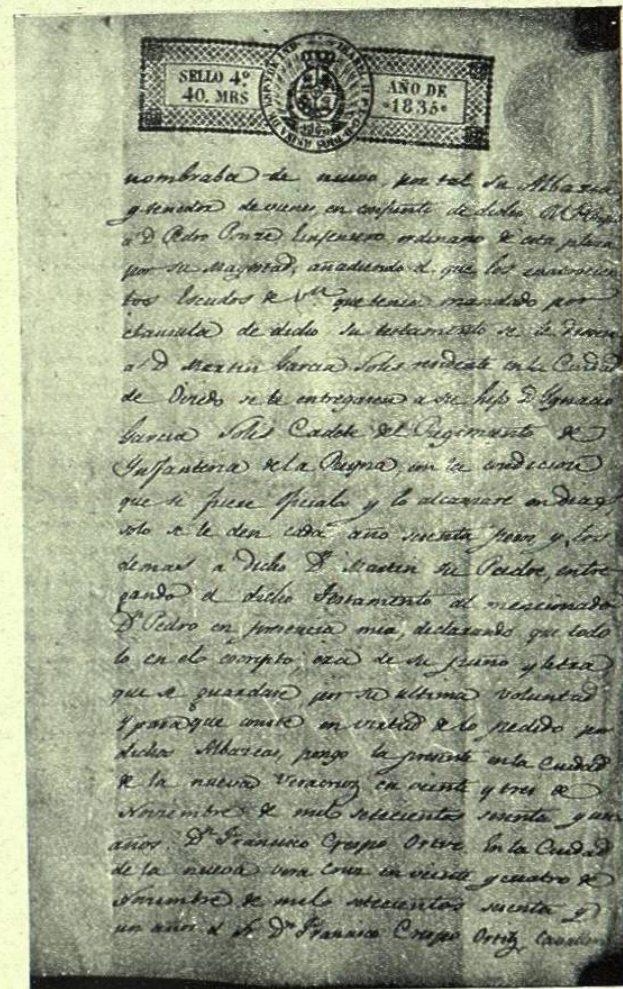 SELLO 4º
40. MRS
AÑO DE
1835
nombraba de nuevo, por tal su Albacea
y tenedor de vienes, en conjunto de dicho
a D. Pedro Ponze Yngeniero ordinario de esta plaza
por su Magestad, añadiendo el que los
tos Escudos de Vn que tenia mandado por
clausula de dicho su testamento se le diesen
a D. Martin Garcia Solis residente en la Ciudad
de Oviedo se le entregasen a su hijo D. Ygnacio
Garcia Solis Cadete del Regimiento de
Ynfanteria de la Reyna, con la condicion
que si fuere oficial y lo alcanzare en dias
solo se le den cada año sesenta pesos y los
demas a dicho Dn Martin su Padre, entre
gando el dicho Testamento al mencionado
Dn Pedro en presencia mia, declarando que todo
lo en el escripto, era de su puño y letra
que se guardase, por su ultima voluntad
Y para que conste en virtud de lo pedido por
dichos Albaceas, pongo la presente en la Ciudad
de la nueva Veracruz en veinte y tres de
Noviembre de mil setecientos sesenta y un
años. Dn Francisco Crespo Ortiz. En la Ciudad
de la nueva Vera Cruz en veinte y cuatro de
Noviembre de mil setecientos sesenta y
un años el Sr. Dn Francisco Crespo Ortiz, Cavallero